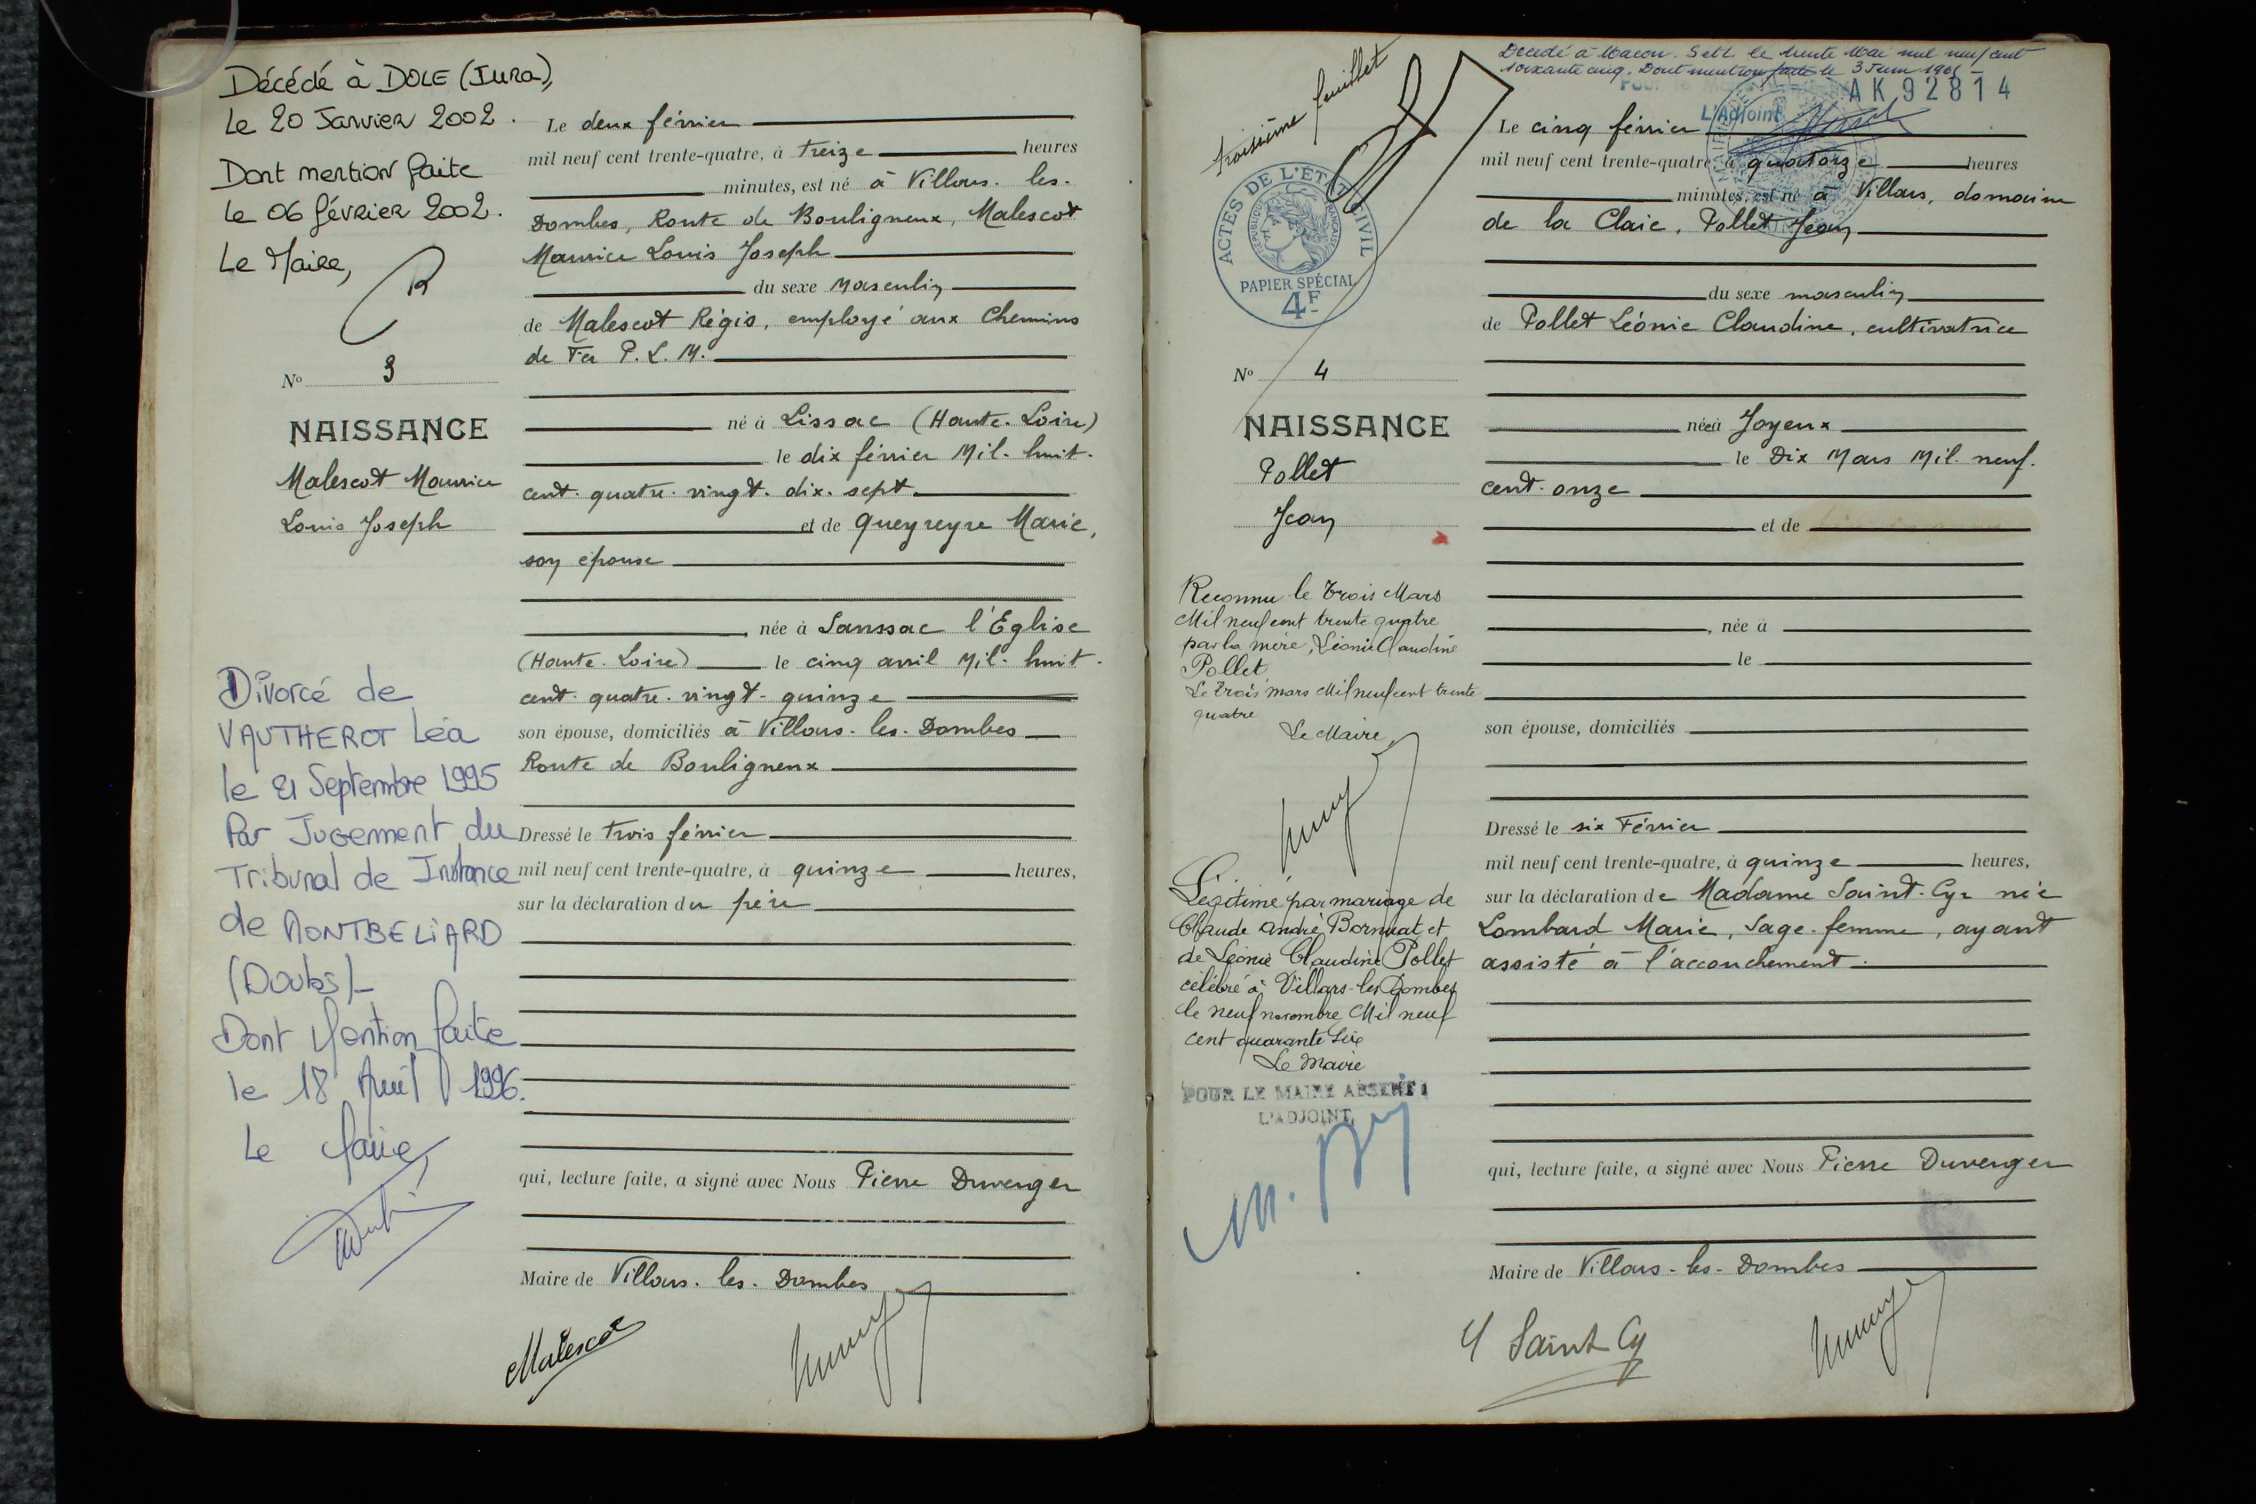 Décédé à DOLE (Jura),
Le 20 Janvier 2002.
Dont mention faite
le 06 février 2002.
Le Maire,
No 3
NAISSANCE
Malescot Maurice
Louis Joseph
Divorcé de
VAUTHEROT Léa
le 21 Septembre 1995
Par Jugement du
Tribunal de Instance
de MONTBELIARD
(Doubs)
Dont Mention faite
le 18 Avril 1996.
Le Maire,
Le deux février
mil neuf cent trente-quatre, à treize heures
minutes, est né à Villars-les-
Dombes, Route de Bouligneux, Malescot
Maurice Louis Joseph
du sexe masculin
de Malescot Régis, employé aux Chemins
de Fer P.L.M.
né à Lissac (Haute-Loire)
le dix février Mil-huit-
cent-quatre-vingt-dix-sept
et de Queyreyre Marie,
son épouse
, née à Sanssac l'Eglise
(Haute-Loire) le cinq avril Mil-huit-
cent-quatre-vingt-quinze
son épouse, domiciliés à Villars-les-Dombes
Route de Bouligneux
Dressé le trois février
mil neuf cent trente-quatre, à quinze heures,
sur la déclaration du père
qui, lecture faite, a signé avec Nous Pierre Duverger
Maire de Villars-les-Dombes
Malescot
troisième feuillet
ACTES DE L'ÉTAT CIVIL
RÉPUBLIQUE FRANÇAISE
PAPIER SPÉCIAL
4F
No 4
NAISSANCE
Pollet
Jean
Reconnu le trois Mars
Mil neuf cent trente quatre
par la mère, Léonie Claudine
Pollet
Le trois mars Mil neuf cent trente
quatre
Le Maire
Légitimé par mariage de
Claude André Bornuat et
de Léonie Claudine Pollet
célébré à Villars-les-Dombes
le neuf novembre Mil neuf
cent quarante six
Le Maire
POUR LE MAIRE ABSENT :
L'ADJOINT,
Décédé à Macon. S et L le trente Mai mil neuf cent
soixante cinq. Dont mention faite le 3 Juin
AK92814
L'Adjoint
Le cinq février
mil neuf cent trente-quatre, à quatorze heures
minutes, est né à Villars, domaine
de la Claie, Pollet Jean
du sexe masculin
de Pollet Léonie Claudine, cultivatrice
née à Joyeux
le Dix Mars Mil-neuf-
cent-onze
et de
, née à
le
son épouse, domiciliés
Dressé le six Février
mil neuf cent trente-quatre, à quinze heures,
sur la déclaration de Madame Saint-Cyr née
Lombard Marie, Sage-femme, ayant
assisté à l'accouchement.
qui, lecture faite, a signé avec Nous Pierre Duverger
Maire de Villars-les-Dombes
Saint Cyr